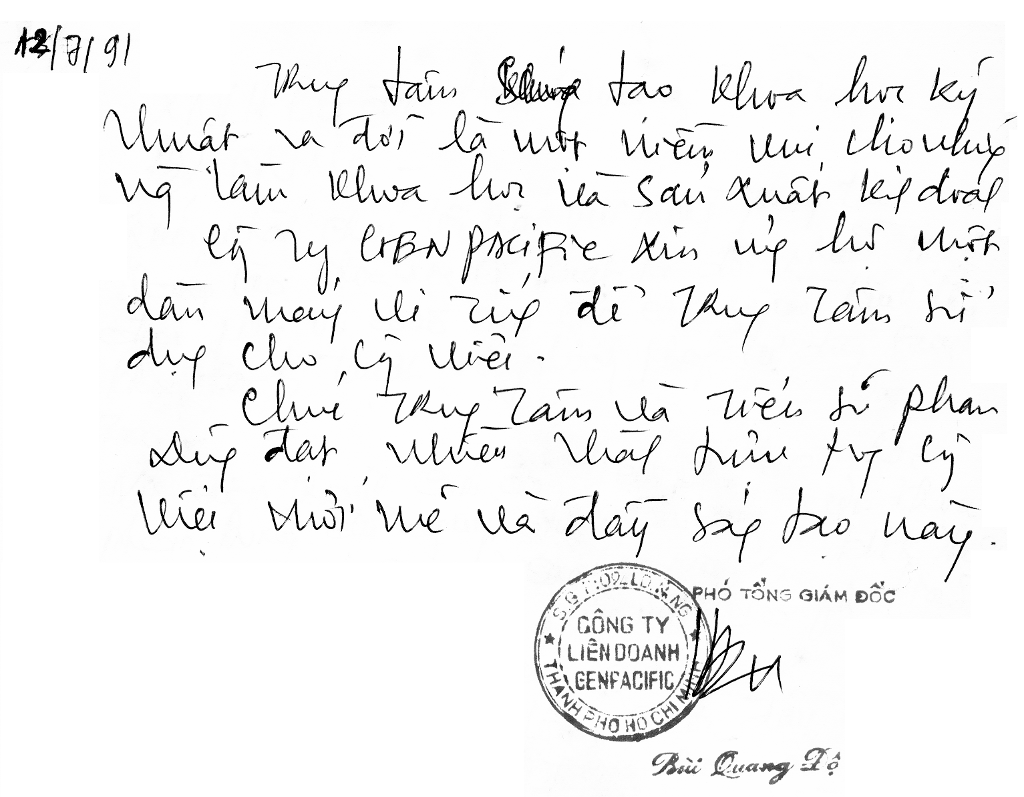 12/7/91
Trung tâm Sáng tạo Khoa học kỹ
thuật ra đời là một niềm vui cho những
ng làm khoa học và sản xuất kinh doanh
Công ty GEN PACIFIC xin ủng hộ một
dàn máy vi tính để Trung tâm sử
dụng cho công việc.
Chúc Trung tâm và Tiến sĩ Phan
Dũng đạt nhiều thành tựu trong công
việc mới mẻ và đầy sáng tạo này.
PHÓ TỔNG GIÁM ĐỐC
CÔNG TY
LIÊN DOANH
GENPACIFIC
THÀNH PHỐ HỒ CHÍ MINH
Bùi Quang Độ